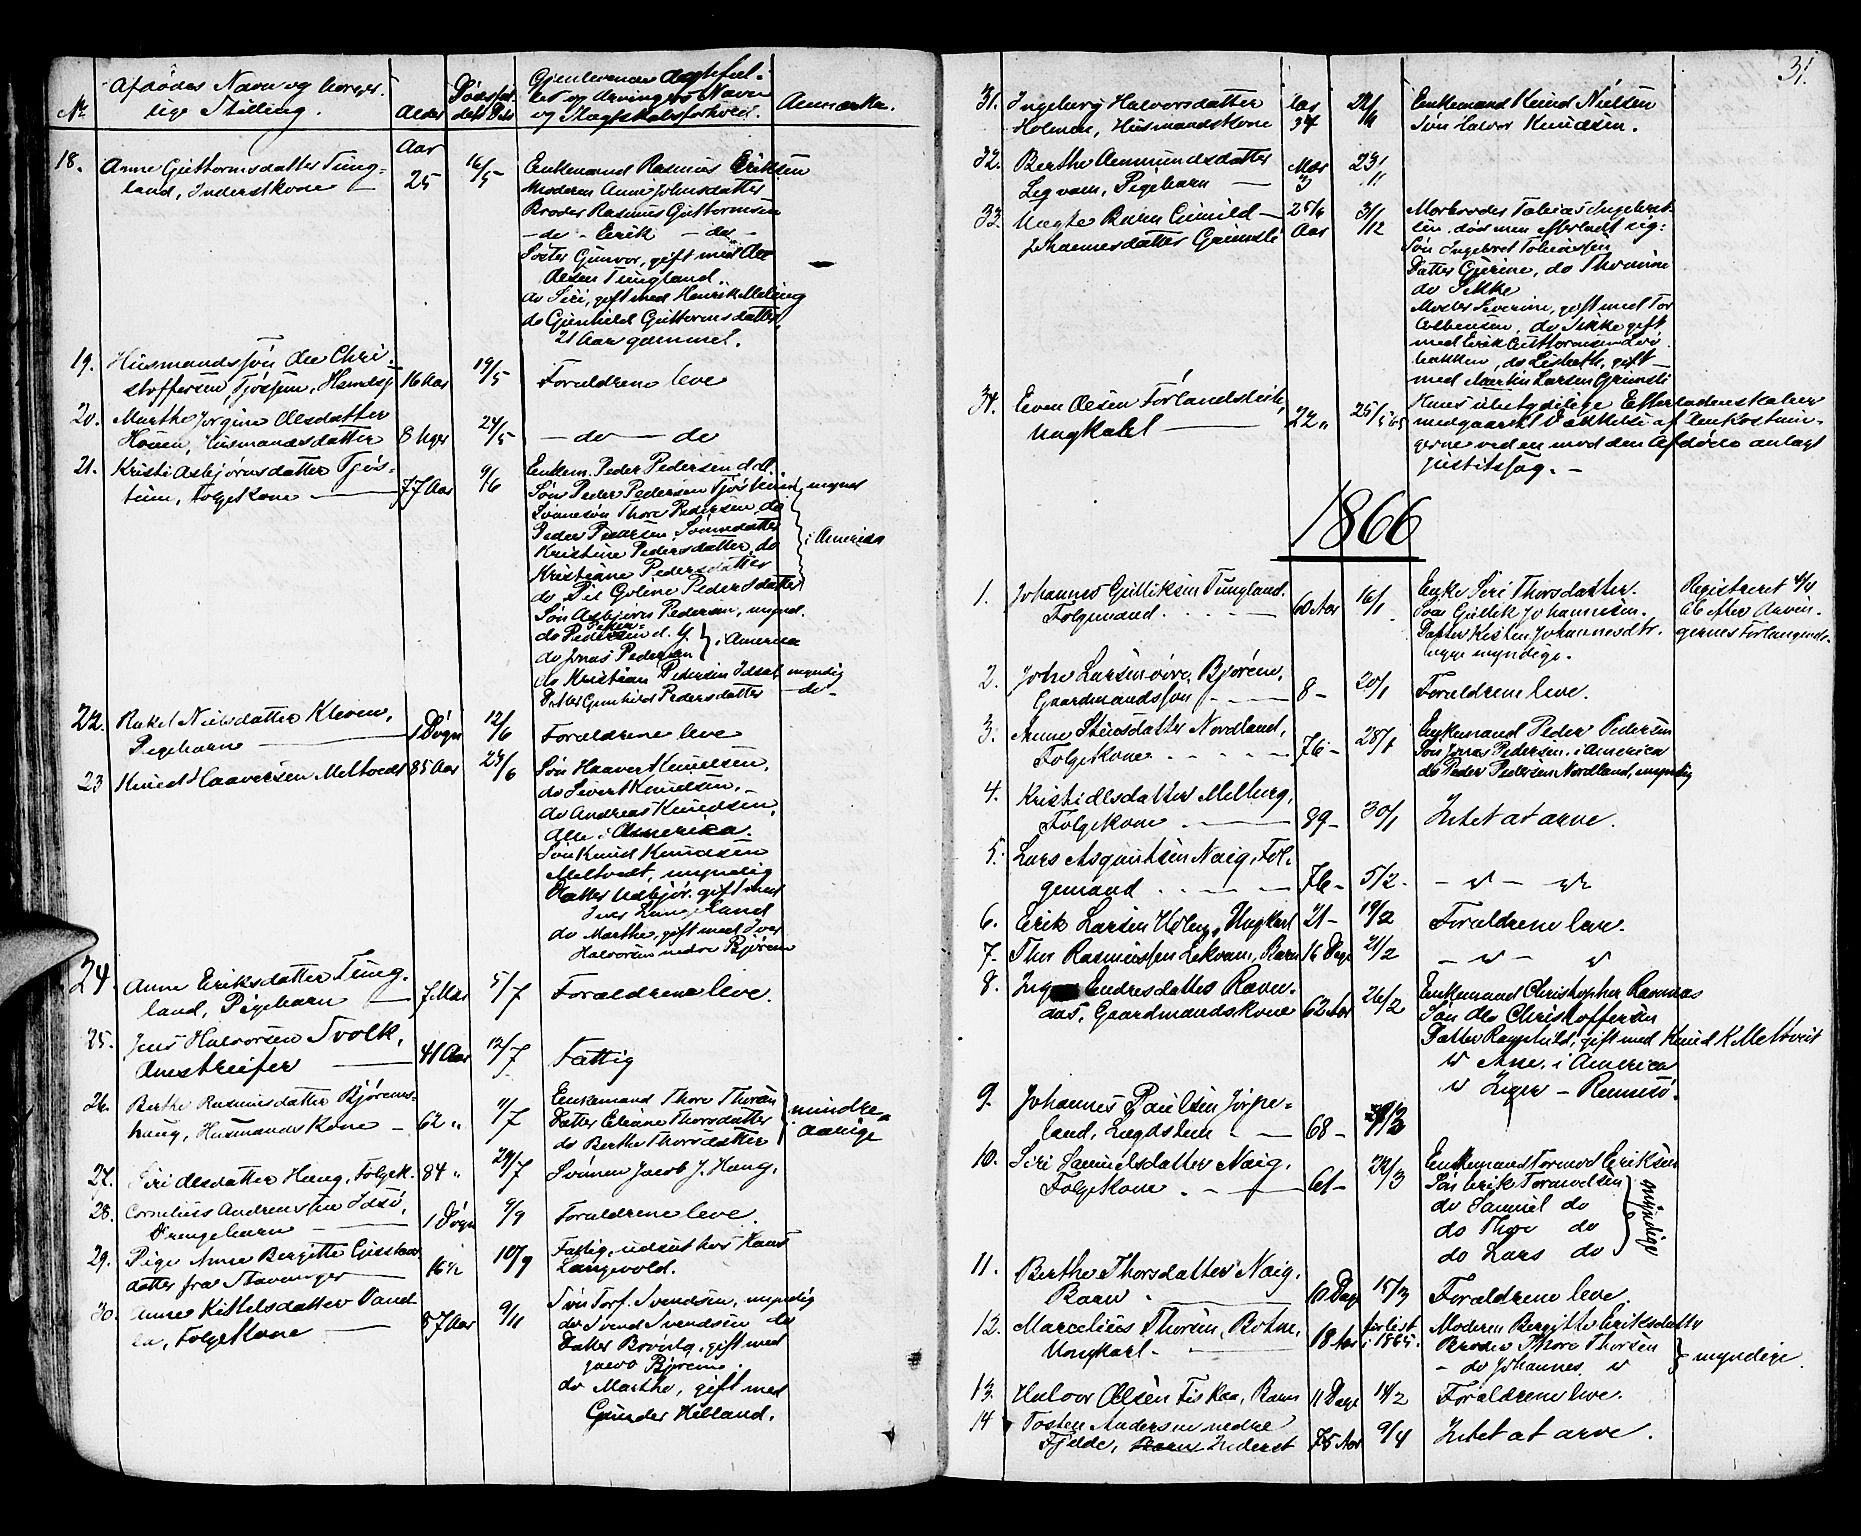 Nr
Afdødes Navn og borger-
lige Stilling.
Alder
Dødsfal-
dets Dato
Gjenlevende Ægtefæl-
les og Arvingers Navn
og Slægtskabsforhold.
Anmærkn.
18. Anne Guttormsdatter Tung-
land, Inderstkone
Aar
25
16/5
Enkemand Rasmus Eriksen
Moderen Anne Johnsdatter
Broder Rasmus Guttormsen
- do - Eerik - do -
Søster Gunvor, gift med
Olsen Tungland
do Siri, gift med Henrik Meling
do Gunhild Guttormsdatter,
21 Aar gammel.
19. Husmandssøn Ole Chri-
stoffersen Tjøstem,
16 Aar
19/5
Forældrene leve
20. Marthe Jorgine Olsdatter
Houen, Husmandsdatter
8 Uger
24/5
- do - do
21. Kristi Asbjørnsdatter Tjøs-
tum, Folgekone
77 Aar
9/6
Enkem. Peder Pedersen d. Æl.
Søn Peder Pedersen Tjøstum, mynd
Sønnesøn Thore Pedersen, do
Peder Pedersen, Sønnedatter
Kristine Pedersdatter, do
Kristiane Pedersdatter
do Goline Pedersdatter
i America
Søn Asbjørn Pedersen, mynd.
do Peder Pedersen d. Y.
do Jonas Pedersen
i America
do Kristian Pedersen Idsal myndig
Datter Gunhild Pedersdatter - do -
22. Rakel Nielsdatter Kleven,
Pigebarn
1 Døgn
12/6
Forældrene leve
23 Knud Haaversen Meltvedt
85 Aar
24/6
Søn Haaver Knudsen,
do Sivert Knudsen, -
do Andreas Knudsen,
Alle i Amerika.
Søn Knud Knudsen
Meltvedt, myndig
Datter Udbjør, gift med
Iver Langeland
do Marthe, gift med Iver
Halvorsen nedre Bjørem
24. Anne Eriksdatter Tung-
land, Pigebarn
7 Mdr
5/7
Forældrene leve.
25. Jens Halvorsen Svolk,
Omstreifer
41 Aar
12/7
Fattig
26. Berthe Rasmusdatter Bjørems-
haug, Husmandskone -
62 "
11/7
Enkemand Thore Thorsen
Datter Eliane Thorsdatter
do Berthe Thorsdatter
mindre-
aarige
27. Siri Olsdatter Haug, Folgek.
84 "
29/7
Svinnen Jacob J. Haug.
28. Cornelius Andreassen Idsø,
Drengebarn
1 Døgn
9/9
Forældrene leve.
29. Pige Anne Bergitte
datter fra Stavanger
16½
10/9
Fattig, udsat hos Knut
Langevold.
30. Anne Kittelsdatter
Folgekone
87 Aar
9/11
Søn Torf. Svendsen, myndig
do Svend Svendsen do
Datter gift med
Bjørem
do Marthe, gift med
Gunder Helland.
31.
31. Ingeborg Halvorsdatter
Holmen, Husmandskone
Aar
34
22/11
Enkemand Knud Nielsen
Søn Halvor Knudsen.
32. Berthe Aanmundsdatter
Legvam, Pigebarn
Mdr
3
23/11
33. Uægte Barn Gunild
Johannesdatter Grimsli
Aar
31/12
Morbroder Tobias Ingebret-
sen død men efterladt sig:
Søn Ingebret Tobiassen
Datter Gurine, do Thomine
do Sikke
Moster Severine, gift med Tor
do Sikke gift
med Eerik Guttormsen
bakken, do Lisbeth, gift
med Martin Larsen Grimsli
34. Even Olsen Førlandslie,
Ungkarl
22 "
25/5 65
Hans ubetydelige Efterladenskaber
medgaaet til Dækkelse af Omkostnin-
gerne ved en mod den Afdøde anlagt
Justitssag. -
1866
1. Johannes Gulliksen Tungland.
Folgemand.
60 Aar
16/1
Enke Siri Thorsdatter.
Søn Gullik Johannesen.
Datter Kisten Johannesdtr.
begge myndige.
Registreret 4/4
66 efter Arvin-
gernes Forlangende.
2. John Larsen øvre Bjørem,
Gaardmandssøn
8 -
20/1
Forældrene leve.
3. Anne Steensdatter Nordland,
Folgekone
76 -
28/1
Enkemand Peder Pedersen
Søn Jonas Pedersen i America
do Peder Pedersen Nordland, myndig
4. Kristi Olsdatter Melberg,
Folgekone
89 -
30/1
Intet at arve.
5. Lars Asgautsen Naig, Fol-
gemand
76 -
5/2
6. Erik Larsen Ungkarl
21 -
19/2
Forældrene leve.
7. Thor Rasmussen Lekvam, Barn
16 Dage
21/2
8. Endresdatter Ravn-
daas, Gaardmandskone
62 Aar
26/2
Enkemand Christopher Rasmus
Søn Ole Christoffersen
Datter Ragnhild, gift med Knud K Meltveit
" Ane, i America
" Inger - Remsø.
9. Johannes Paulsen Jørpe-
land, Lægdslem
68 -
10. Siri Samuelsdatter Naig.
Folgekone
61 -
22/3
Enkemand Tormod Eriksen
Søn Erik Tormodsen
do Samuel do
do Thore do
do Lars do
myndige
11. Berthe Thorsdatter Naig.
Barn
10 Dage
15/3
Forældrene leve.
12. Marcelius Thorsen, Botne,
Ungkarl.
18 Aar
forlist
i 1865.
Moderen Bergitte Eriksdatter
Broder Thore Thorsen
- do Johannes "
myndige.
13. Halvor Olsen Fiskaa, Barn
11 Dage
14/2
Forældrene leve.
14 Tosten Andersen nedre
Fjelde, Inderst
75 Aar
9/4
Intet at arve.